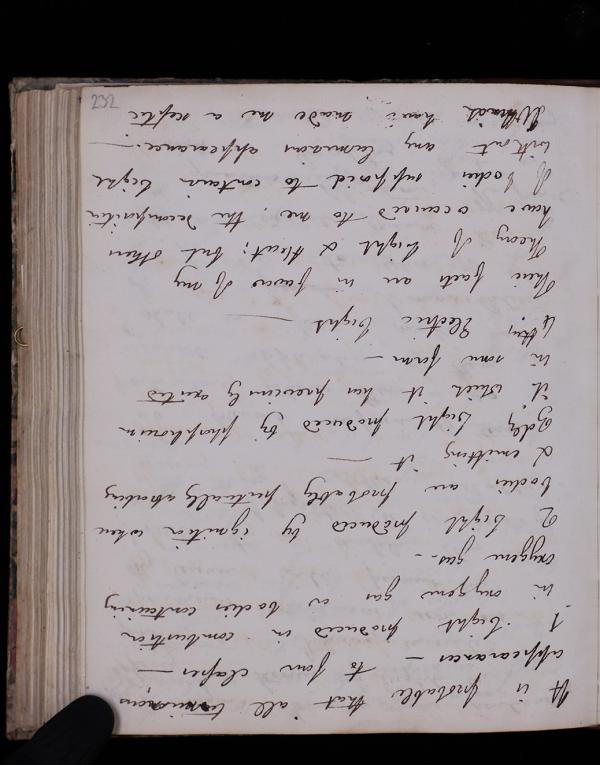 232
It is probable that all luminous
appearances — to four classes —
1. Light produced in combustion
in oxygene gas or bodies containing
oxygene gas. —
2 Light produced by ignition when
bodies are probably perpetually absorbing
& emitting it —
3dly Light produced by phosphorism
in which it has previously existed
in some form —
4thly, Electric light —
These facts are in favor of my
Theory of light & Heat; but others
have occurred to me. the decomposition
of bodies supposed to contain light
without any luminous appearance. —
have made me a sceptic